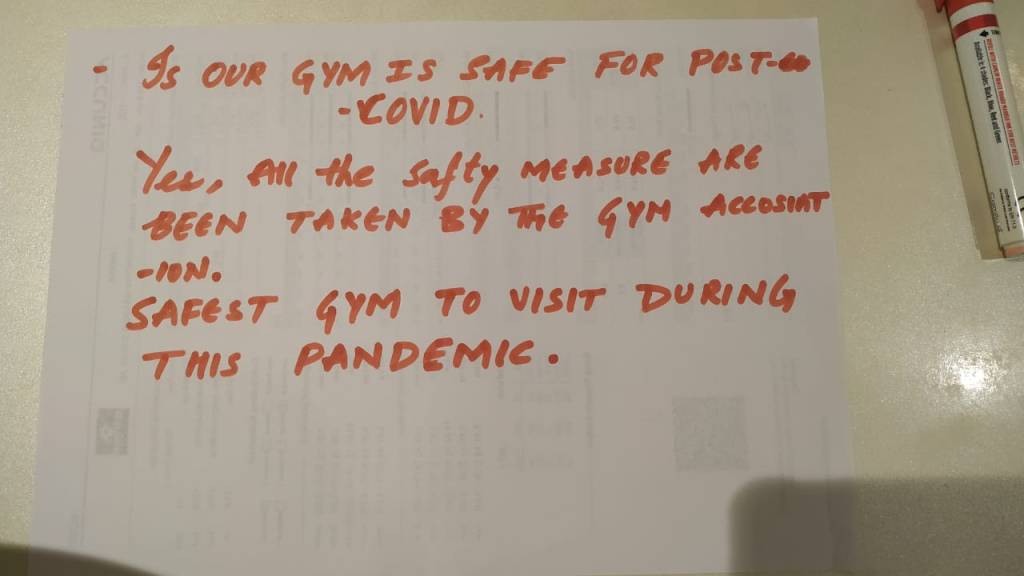 - Is OUR GYM IS SAFE FOR POST-co
-COVID.
Yes, All the safty MEASURE ARE
BEEN TAKEN BY THE GYM ACCOSIAT
-ION.
SAFEST GYM TO VISIT DURING
THIS PANDEMIC.